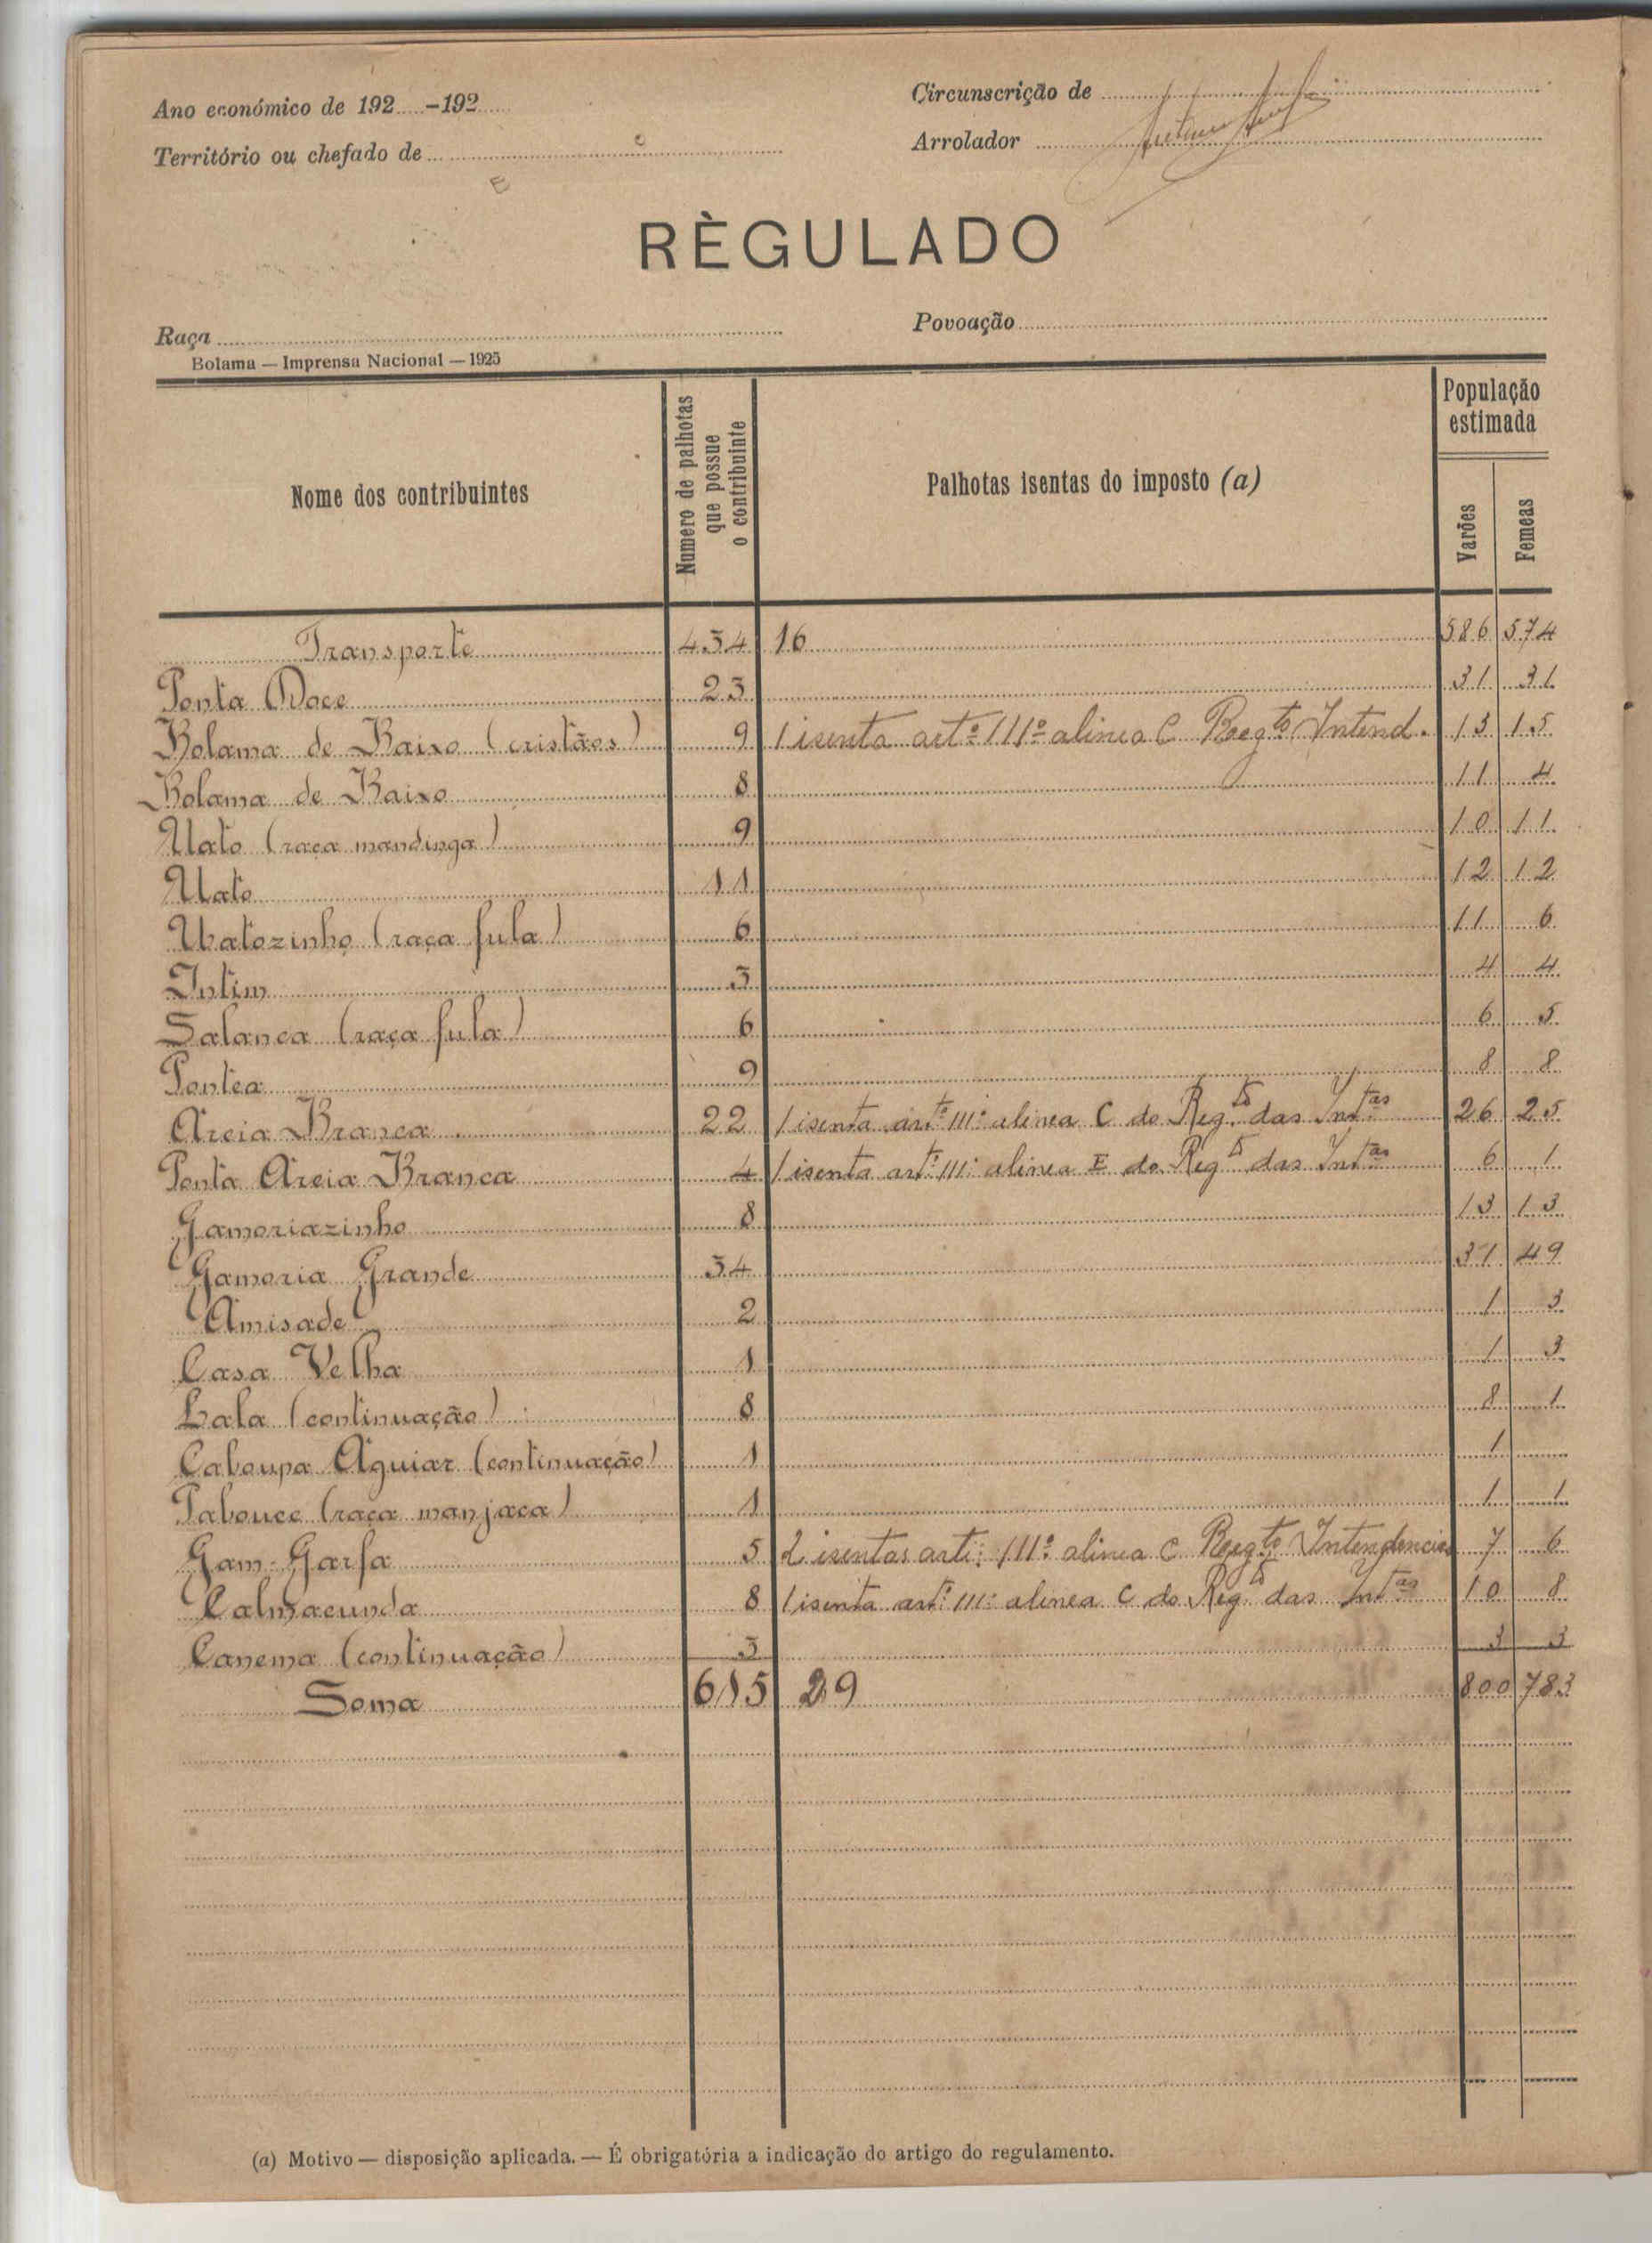 Ano económico de 192 -192
Circunscrição de
Território ou chefado de
Arrolador
RÈGULADO
Raça
Povoação
Bolama — Imprensa Nacional — 1925
Nome dos contribuintes
Numero de palhotas que possue o contribuinte
Palhotas isentas do imposto (a)
População estimada
Varões
Femeas
Transporte 434 16 586 574
Ponta Doce 23 31 31
Bolama de Baixo (cristãos) 9 1 isenta artº 111º alinea C Regto Intend. 13 15
Bolama de Baixo 8 11 4
Uato (raça mandinga) 9 10 11
Uato 11 12 12
Uatozinho (raça fula) 6 11 6
Intim 3 4 4
Salanca (raça fula) 6 6 5
Pontea 9 8 8
Areia Branca 22 1 isenta artº 111º alinea C do Regto das Intas 26 25
Ponta Areia Branca 4 1 isenta artº 111º alinea E do Regto das Intas 6 1
Gamoriazinho 8 13 13
Gamoria Grande 34 31 49
Amisade 2 1 3
Casa Velha 1 1 3
Lala (continuação) 8 8 1
Caboupa Aguiar (continuação) 1 1
Tabouce (raça manjaca) 1 1 1
Gam-Garfa 5 2 isentas arti: 111º alinea C Regto Intendencias 7 6
Calmacunda 8 1 isenta artº 111º alinea C do Regto das Intas 10 8
Canema (continuação) 3 3 3
Soma 615 29 800 783
(a) Motivo — disposição aplicada. — É obrigatória a indicação do artigo do regulamento.